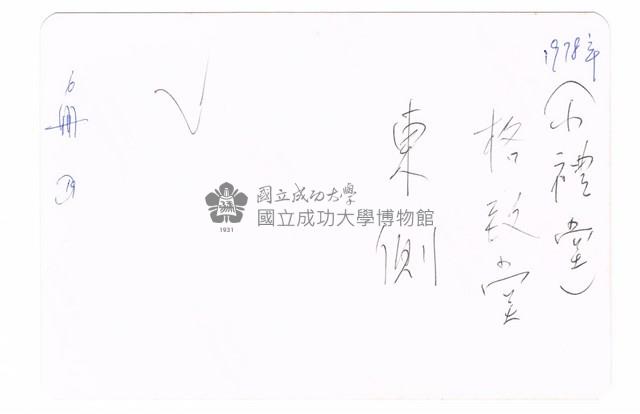 1978年
(小禮堂)
格致堂
東側
6冊
19
國立成功大學
國立成功大學博物館
1931